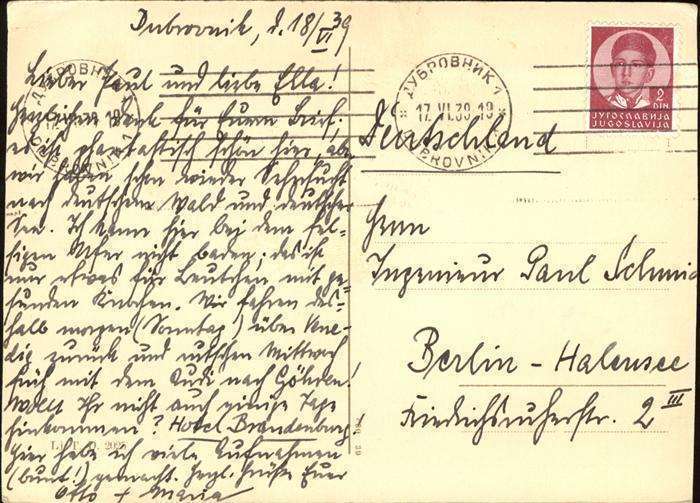 Dubrovnik, d. 18/VI 39
Lieber Paul und liebe Ella!
Herzlichen Dank für Euren Brief.
es ist phantastisch schön hier, aber
wir haben schon wieder Sehnsucht
nach deutschem Wald und deutscher
See. Ich kann hier bei dem fel-
sigen Ufer nicht baden; das ist
nur etwas für Leutchen mit ge-
sunden Knochen. Wir fahren des-
halb morgen (Sonntag!) über Vene-
dig zurück und rutschen Mittwoch
früh mit dem Audi nach Göhren!
Wollt Ihr nicht auch einige Tage
hinkommen? Hotel Brandenburg!
Hier habe ich viele Aufnahmen
(bunt!) gemacht. Herzl. Grüße Euer
Otto + Maria
ДУБРОВНИК 1
17.VI.39.19
DUBROVNIK
ДУБРОВНИК
DUBROVNIK
2
DIN.
ЈУГОСЛАВИЈА
JUGOSLAVIJA
Deutschland
Herrn
Ingenieur Paul Schmid
Berlin - Halensee
Friedrichsruherstr. 2 III